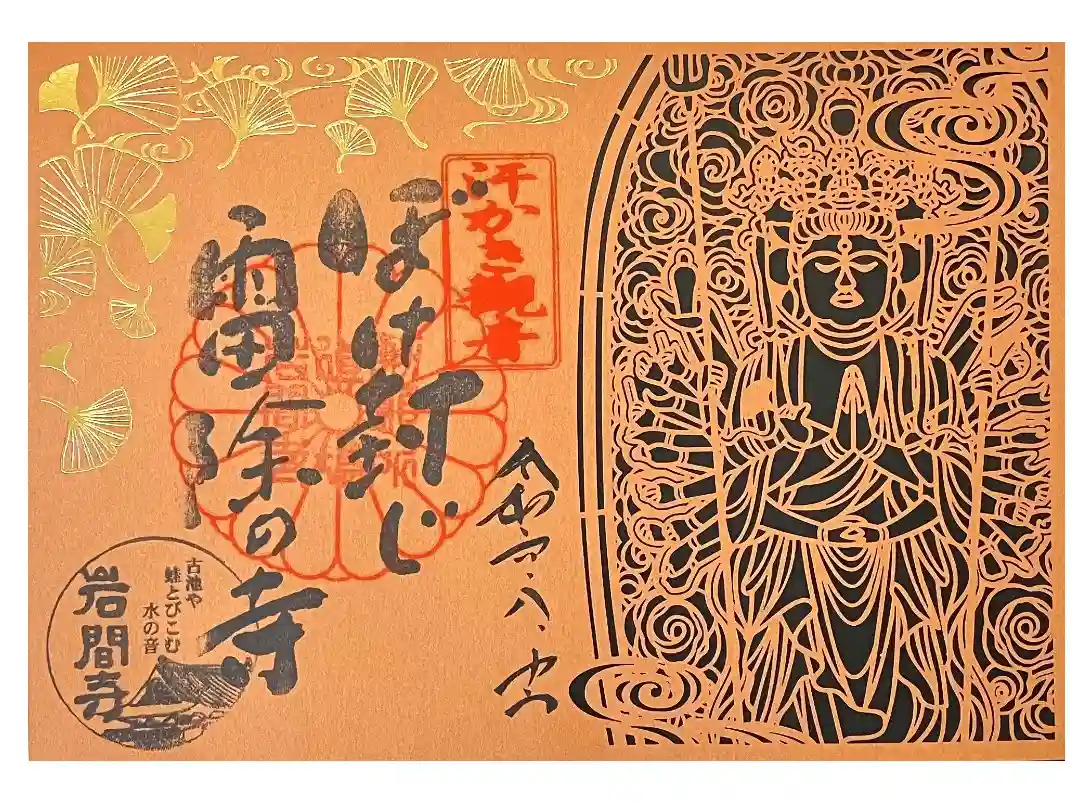 汗かき観音
ぼけ封じ
雷除の寺
令和 八、
古池や
蛙とびこむ
水の音
岩間寺